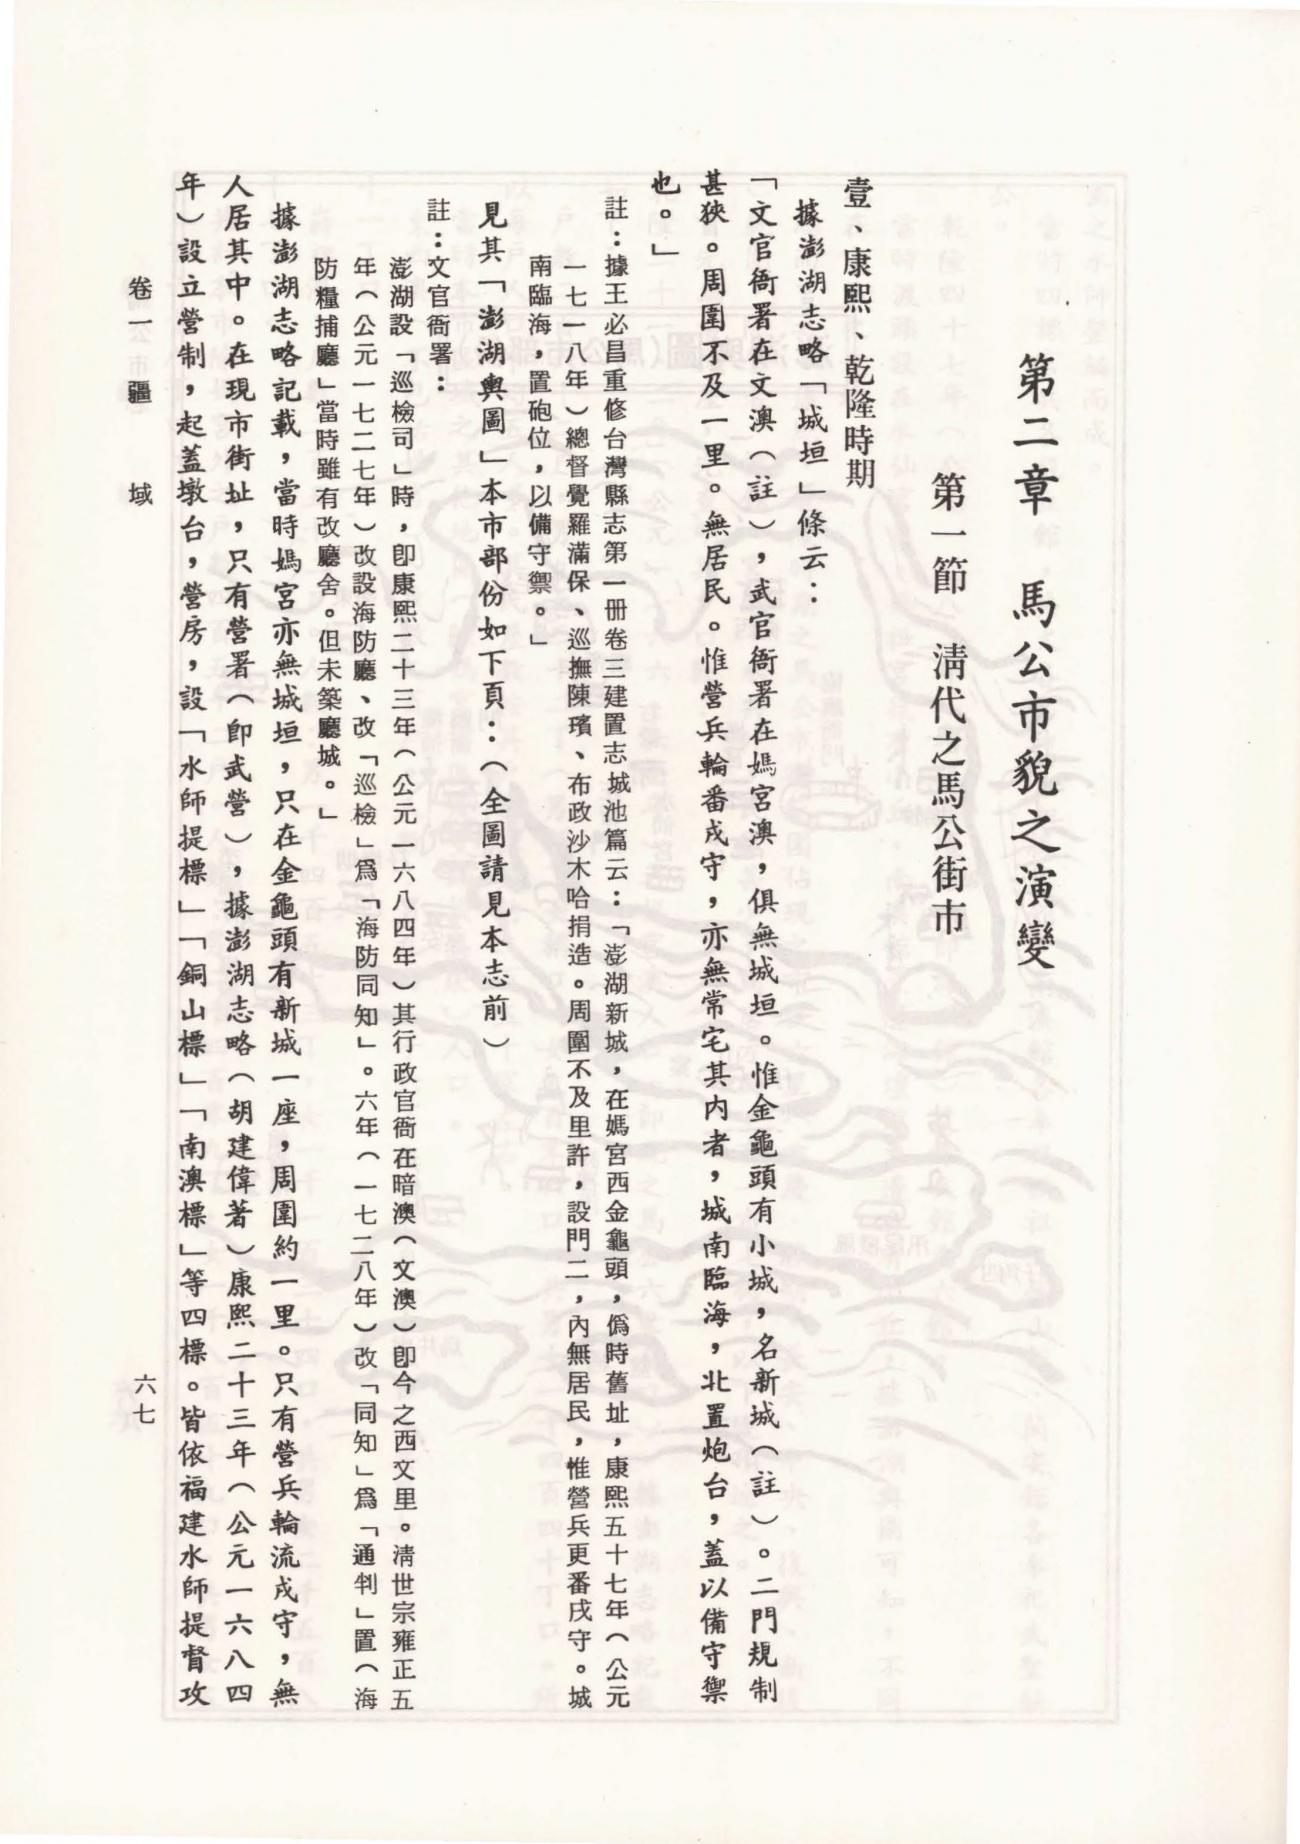 第二章　馬公市貌之演變
第一節　淸代之馬公街市
壹、康熙、乾隆時期
據澎湖志略「城垣」條云：
「文官衙署在文澳（註），武官衙署在媽宮澳，俱無城垣。惟金龜頭有小城，名新城（註）。二門規制
甚狹。周圍不及一里。無居民。惟營兵輪番戍守，亦無常宅其內者，城南臨海，北置炮台，蓋以備守禦
也。」
註：據王必昌重修台灣縣志第一册卷三建置志城池篇云：「澎湖新城，在媽宮西金龜頭，僞時舊址，康熙五十七年（公元
一七一八年）總督覺羅滿保、巡撫陳璸、布政沙木哈捐造。周圍不及里許，設門二，內無居民，惟營兵更番戍守。城
南臨海，置砲位，以備守禦。」
見其「澎湖輿圖」本市部份如下頁：（全圖請見本志前）
註：文官衙署：
澎湖設「巡檢司」時，卽康熙二十三年（公元一六八四年）其行政官衙在暗澳（文澳）卽今之西文里。淸世宗雍正五
年（公元一七二七年）改設海防廳、改「巡檢」爲「海防同知」。六年（一七二八年）改「同知」爲「通判」置（海
防糧捕廳」當時雖有改廳舍。但未築廳城。」
據澎湖志略記載，當時媽宮亦無城垣，只在金龜頭有新城一座，周圍約一里。只有營兵輪流戍守，無
人居其中。在現市街址，只有營署（卽武營），據澎湖志略（胡建偉著）康熙二十三年（公元一六八四
年）設立營制，起蓋墩台，營房，設「水師提標」「銅山標」「南澳標」等四標。皆依福建水師提督攻
卷一　疆　域
六七